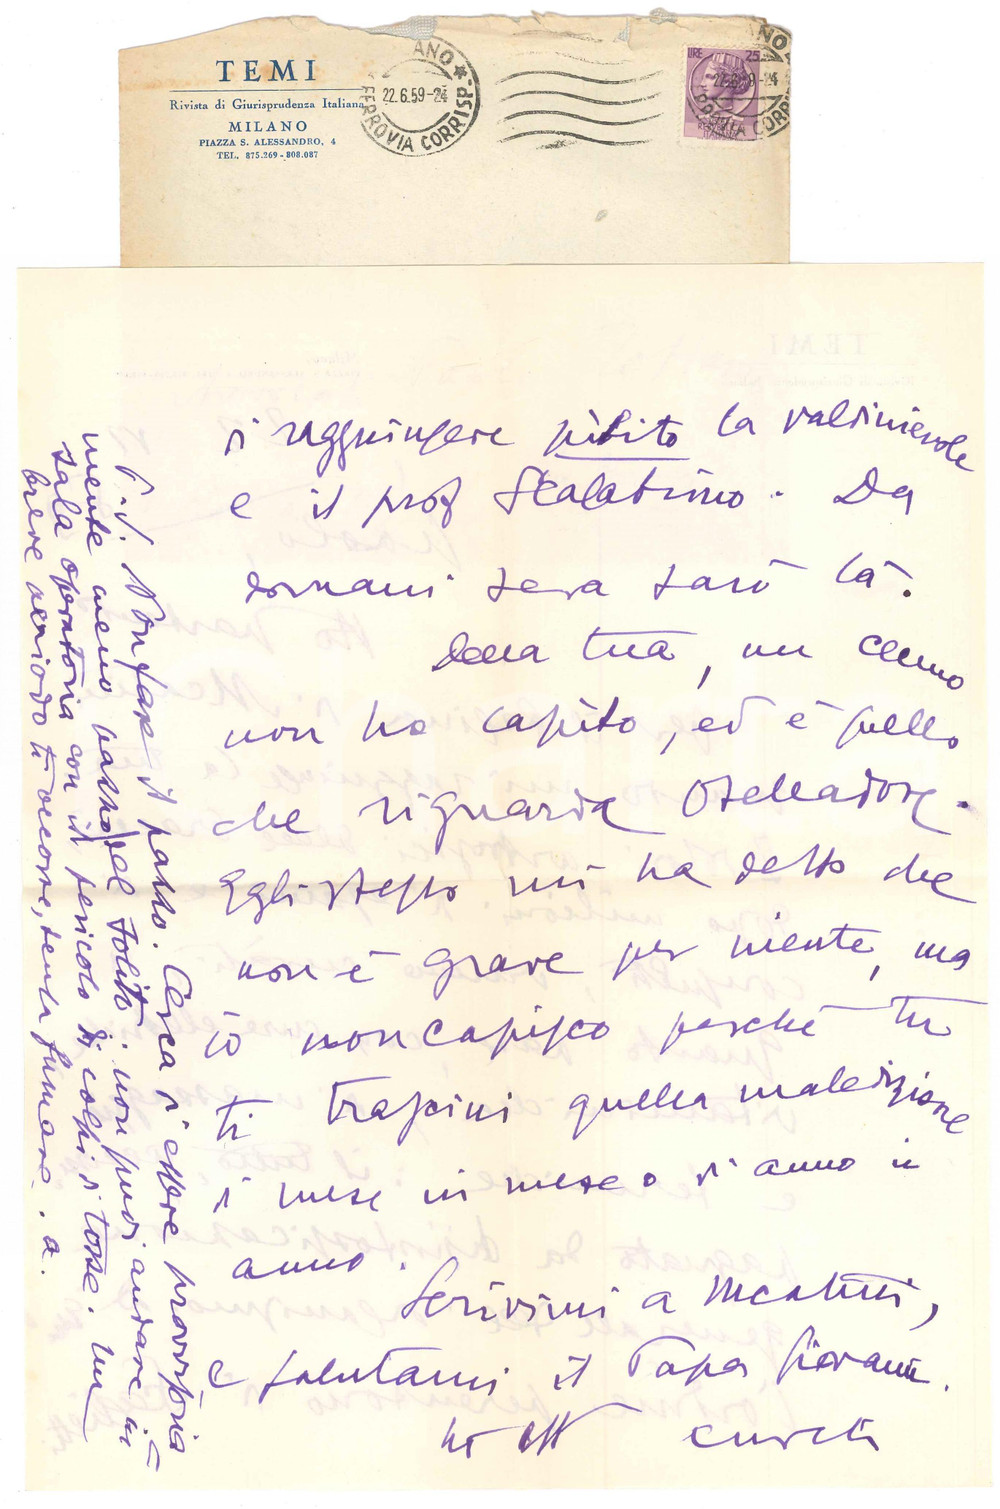 TEMI
Rivista di Giurisprudenza Italiana
MILANO
PIAZZA S. ALESSANDRO, 4
TEL. 875.269 - 808.087
ANO
22.6.59-24
FERROVIA CORRISP.
LIRE 25
22.6.59-24
di raggiungere subito la valdinievole
e il prof Scalabrino. Da
domani sera sarò là.
Della tua, un cenno
non ho capito, ed è quello
che riguarda
Egli stesso mi ha detto che
non è grave per niente, ma
io non capisco perché tu
ti trascini quella maledizione
di mese in mese o di anno in
anno.
Scrivimi a Mcatini,
e salutami il Papa Giovanni.
tò aff
P.S. Non fare il pazzo. Cerca di essere provvisoria
mente meno pazzo del solito: non puoi andare in
sala operatoria con il pericolo di colpi di tosse. Un
breve periodo ti occorre, senza fumare. a.